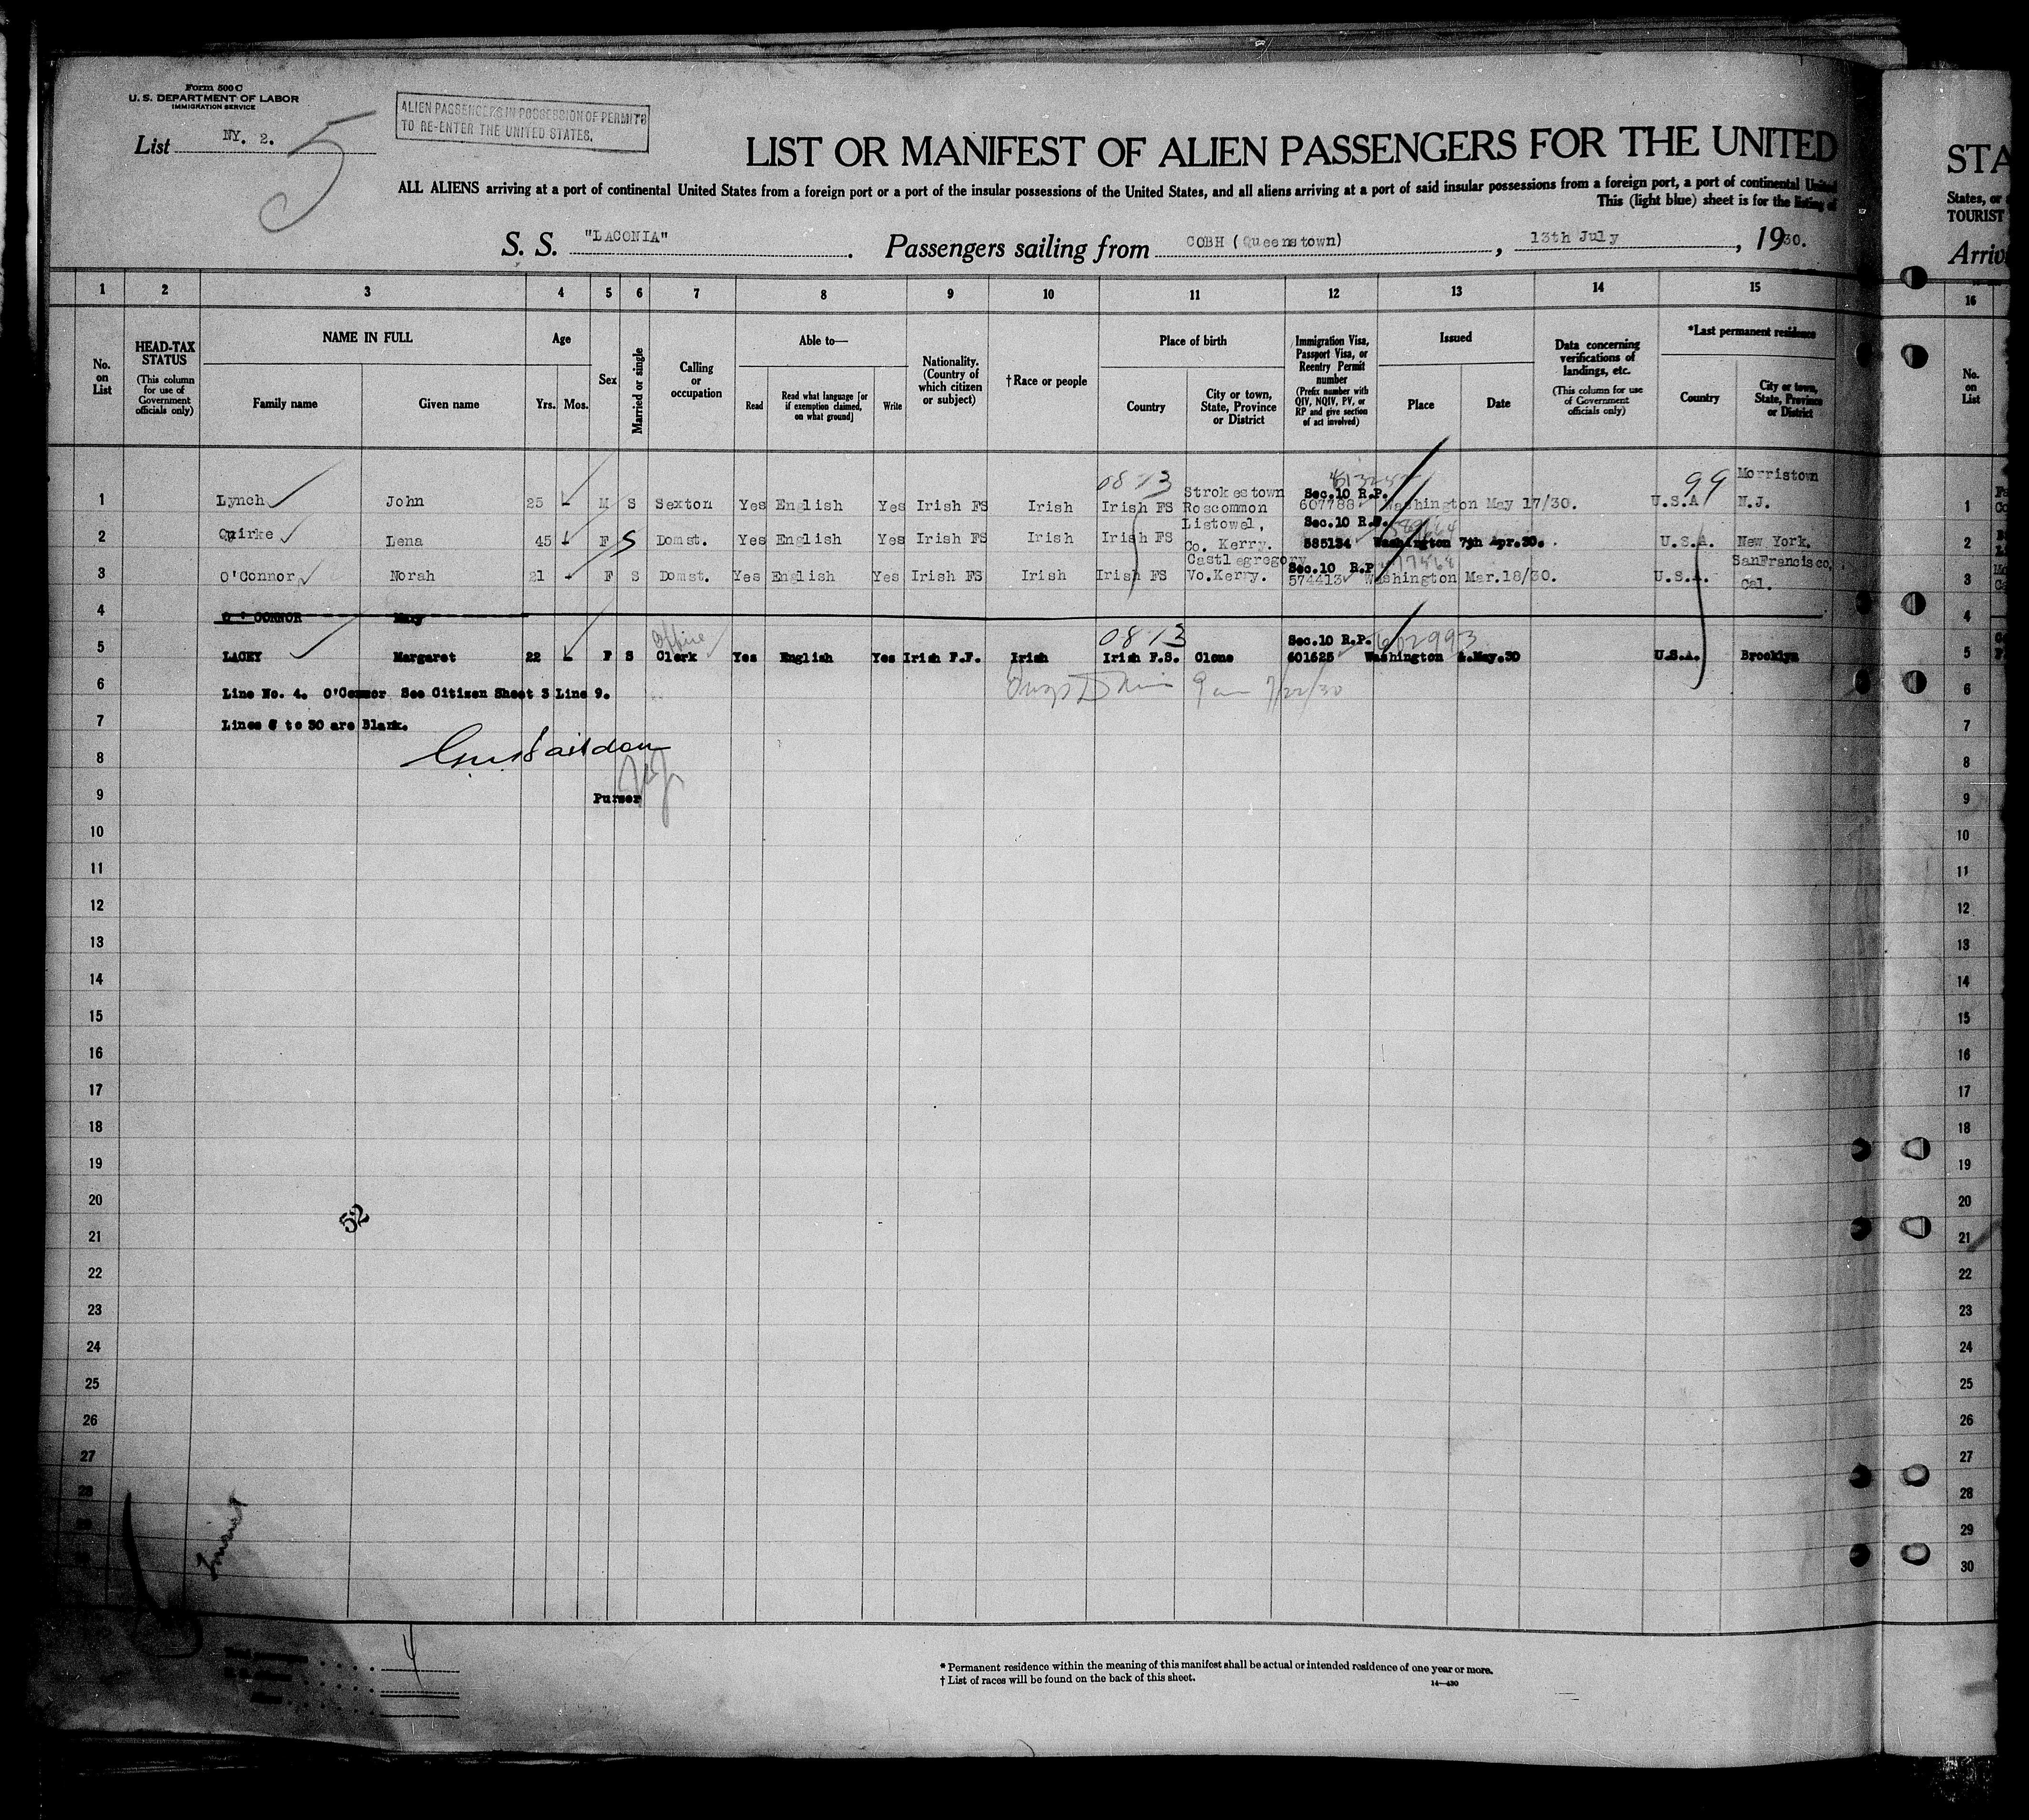 Form 500 C
U. S. DEPARTMENT OF LABOR
IMMIGRATION SERVICE
List NY. 2.
5
ALIEN PASSENGERS IN POSSESSION OF PERMITS
TO RE-ENTER THE UNITED STATES.
LIST OR MANIFEST OF ALIEN PASSENGERS FOR THE UNITED
STA
ALL ALIENS arriving at a port of continental United States from a foreign port or a port of the insular possessions of the United States, and all aliens arriving at a port of said insular possessions from a foreign port, a port of continental United
States, or
This (light blue) sheet is for the listing of
TOURIST
S. S. "LACONIA". Passengers sailing from COBH (Queenstown), 13th July, 1930.
Arriv
1 2 3 4 5 6 7 8 9 10 11 12 13 14 15 16
No. on List
HEAD-TAX STATUS
(This column for use of Government officials only)
NAME IN FULL
Family name Given name
Age
Yrs. Mos.
Sex
Married or single
Calling or occupation
Able to—
Read
Read what language [or if exemption claimed, on what ground]
Write
Nationality. (Country of which citizen or subject)
† Race or people
Place of birth
Country
City or town, State, Province or District
Immigration Visa, Passport Visa, or Reentry Permit number
(Prefix number with QIV, NQIV, PV, or RP and give section of act involved)
Issued
Place Date
Data concerning verifications of landings, etc.
(This column for use of Government officials only)
*Last permanent residence
Country
City or town, State, Province or District
No. on List
08 13 99 Morristown
Strokestown Sec.10 R.P.
1 Lynch John 25 - M S Sexton Yes English Yes Irish FS Irish Irish FS Roscommon 607788 Washington May 17/30. U.S.A N.J. 1
Listowel, Sec.10 R.P.
2 Quirke Lena 45 - F S Domst. Yes English Yes Irish FS Irish Irish FS Co. Kerry. 585134 Washington 7th Apr.30. U.S.A. New York. 2
Castlegregory Sec.10 R.P SanFrancisco,
3 O'Connor Norah 21 - F S Domst. Yes English Yes Irish FS Irish Irish FS Vo.Kerry. 574413 Washington Mar.18/30. U.S.A. Cal. 3
4 O'CONNOR May 4
Office 08 13 Sec.10 R.P. 602993
5 LACEY Margaret 22 - F S Clerk Yes English Yes Irish F.F. Irish Irish F.S. Clone 601625 Washington May.30 U.S.A. Brooklyn 5
6 Line No. 4. O'Connor See Citizen Sheet 3 Line 9. 7/22/30 6
7 Lines 6 to 30 are Blank. 7
8 8
9 Purser 9
10 10
11 11
12 12
13 13
14 14
15 15
16 16
17 17
18 18
19 19
20 20
52
21 21
22 22
23 23
24 24
25 25
26 26
27 27
28 28
29
30
4
* Permanent residence within the meaning of this manifest shall be actual or intended residence of one year or more.
† List of races will be found on the back of this sheet.
14—430